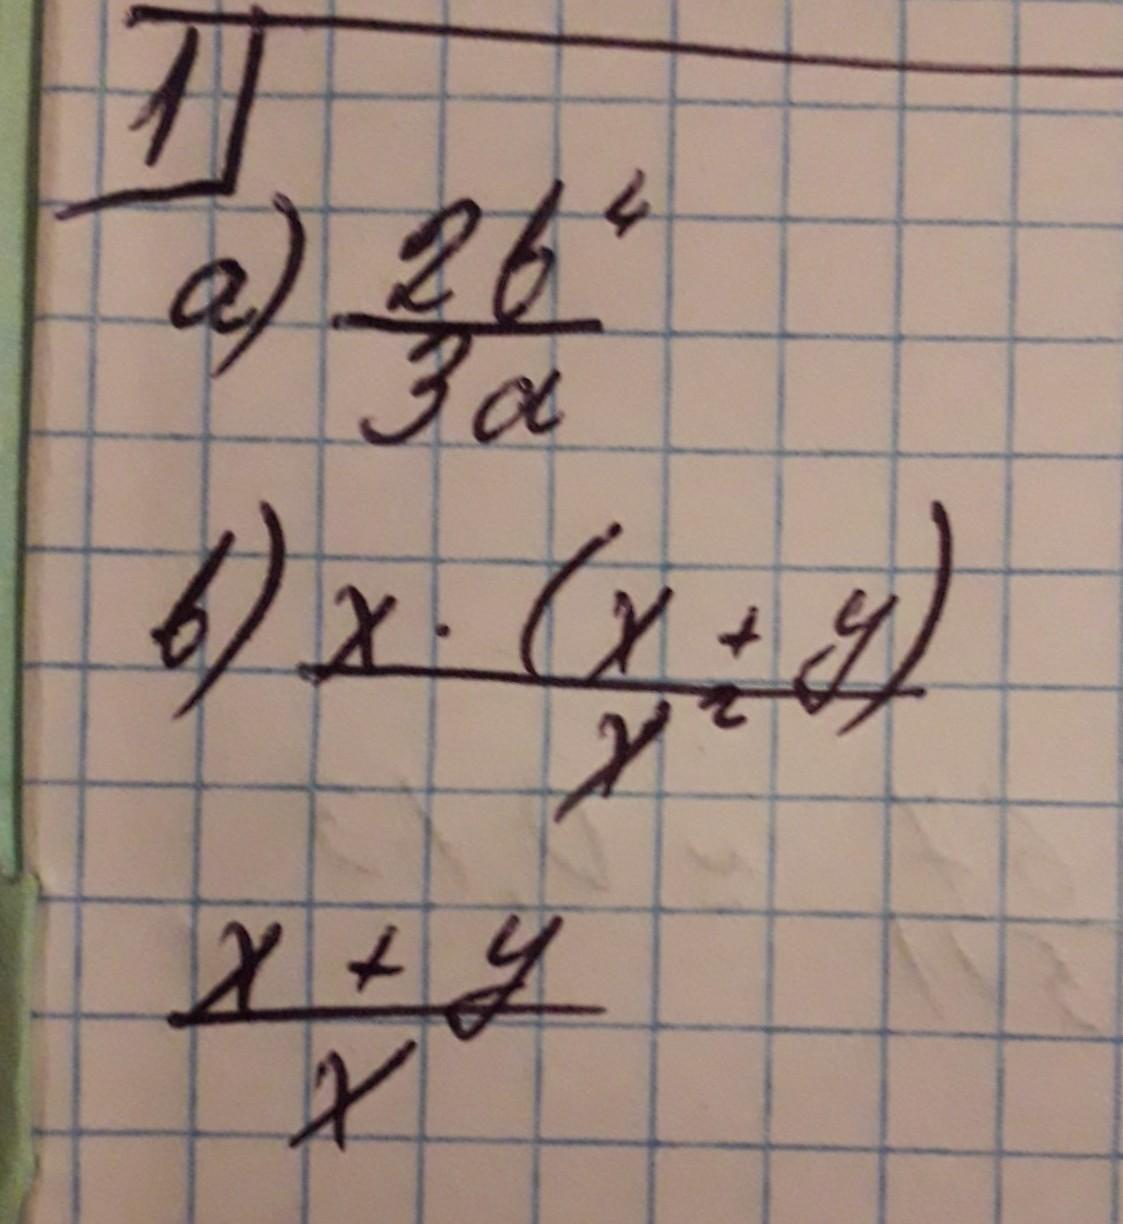 1
а) 2b⁴ / 3a
в) x · (x + y) / x²
x + y / x